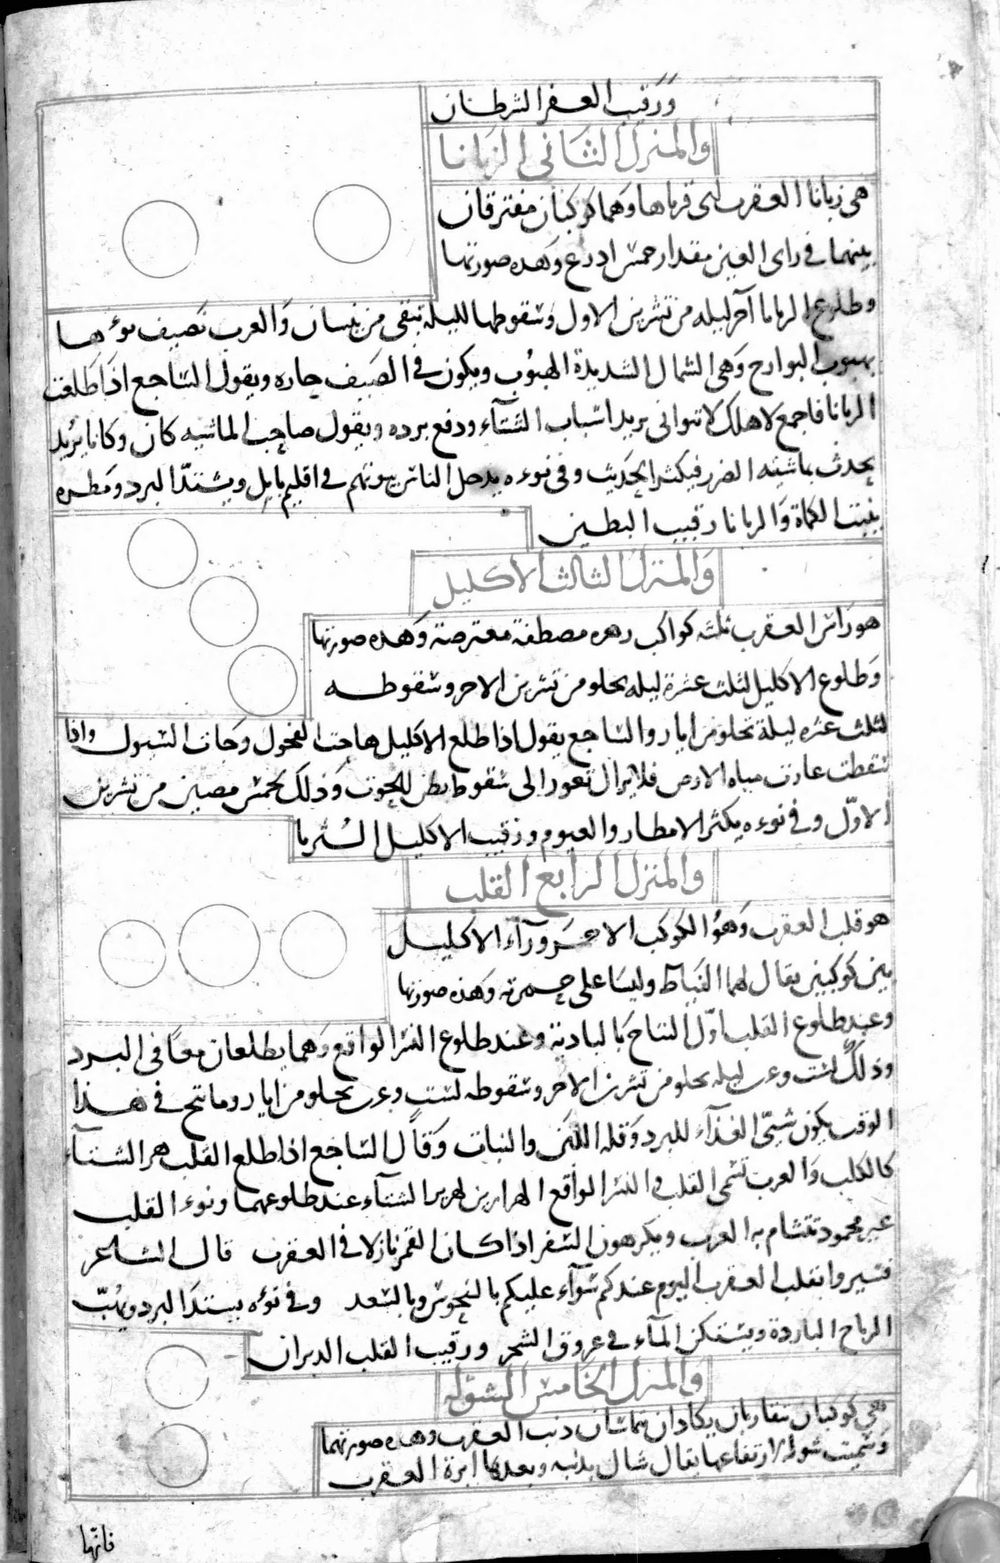 ورقيب العفر الشرطان
والمنزل الثانى الزبانا
هى زبانا العقرب اى قرناها وهما كوكبان مفترقان
بينهما فى راى العين مقدار خمس اذرع وهذه صورتها
وطلوع الزبانا آخر ليله من تشرين الاول وسقوطها لليلة تبقى من نيسان والعرب تصيف نوءها
بهبوب البوارح وهى الشمال الشديدة الهبوب ويكون فى الصيف حاره ويقول الساجع اذا طلعت
الزبانا فاجمع لاهلك لا توانى يريد اسباب الشتآء ودفع برده ويقول صاحب الماشيه كان وكانا يريد
يحدث ماشيته الضرر فيكثر الحديث وفى نوءه يدخل الناس بيوتهم فى اقليم بابل ويشتدّ البرد ومطره
ينبت الكماة والزبانا رقيب البطين
والمنزل الثالث الاكليل
هو راس العقرب ثلثه كواكب زهره مصطفة معترضة وهذه صورتها
وطلوع الاكليل لثلث عشرة ليله يخلو من تشرين الاخر وسقوطه
لثلث عشره ليلة تخلو من ايار والساجع يقول اذا طلع الاكليل هاجت الفحول وجات السيول واذا
سقطت غارت مياه الارض فلا يزال تغور الى سقوط بطن الحوت وذلك لخمس مضين من تشرين
الاوّل وفى نوءه يكثر الامطار والغيوم ورقيب الاكليل الثريا
والمنزل الرابع القلب
هو قلب العقرب وهو الكوكب الاحمر ورآء الاكليل
بين كوكبين يقال لهما النياط وليسا على حمرته وهذه صورتها
وعند طلوع القلب اوّل النتاج بالبادية وعند طلوع النسر الواقع وهما يطلعان معًا فى البرد
وذلك لست وعر ليله يخلو من تشرين الاخر وسقوطه لست وعر يخلو من ايار وما نتج فى هذا
الوقت يكون سّىّ الغذآء للبرد وقلة اللبن والنبات وقال الساجع اذا طلع القلب هر الشتآء
كالكلب والعرب تسمى القلب و النسر الواقع الهرارين لهرير الشتآء عند طلوعهما ونوء القلب
غير محمود تتشام به العرب ويكرهون السفر اذا كان القمر نازلا فى العقرب قال الشاعر
فسيروا بقلب العقرب اليوم عندكم سوآء عليكم بالنحوس وبالسعد وفى نوءه يشتد البرد ويهبّ
الرياح الباردة ويسكن المآء فى عروق الشجر ورقيب القلب الدبران
والمنزل الخامس الشوله
هى كوكبان متقاربان يكادان يتماسان ذنب العقرب وهذه صورتهما
وسميت شوله لارتفاعها يقال شال بذنبه وبعدها ابرة العقرب
فانها